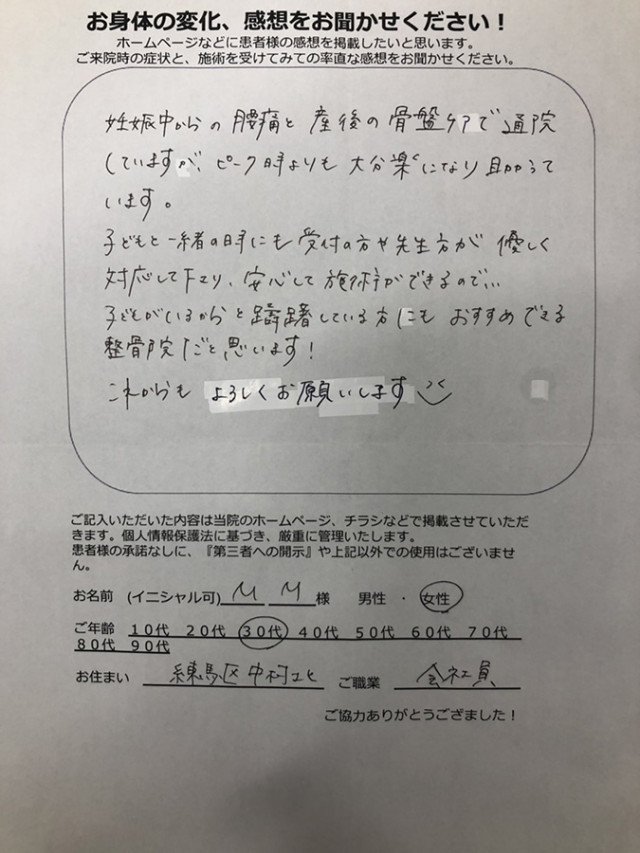 お身体の変化、感想をお聞かせください！
ホームページなどに患者様の感想を掲載したいと思います。
ご来院時の症状と、施術を受けてみての率直な感想をお聞かせください。
妊娠中からの腰痛と産後の骨盤ケアで通院
していますが、ピーク時よりも大分楽になり助かって
います。
子どもと一緒の時にも受付の方や先生方が優しく
対応して下さり、安心して施術ができるので…
子どもがいるからと躊躇している方にもおすすめできる
整骨院だと思います！
これからもよろしくお願いします
ご記入いただいた内容は当院のホームページ、チラシなどで掲載させていただ
きます。個人情報保護法に基づき、厳重に管理いたします。
患者様の承諾なしに、『第三者への開示』や上記以外での使用はございませ
ん。
お名前 (イニシャル可) M M 様 男性 ・ 女性
ご年齢 10代 20代 30代 40代 50代 60代 70代
80代 90代
お住まい 練馬区中村北 ご職業 会社員
ご協力ありがとうござました！